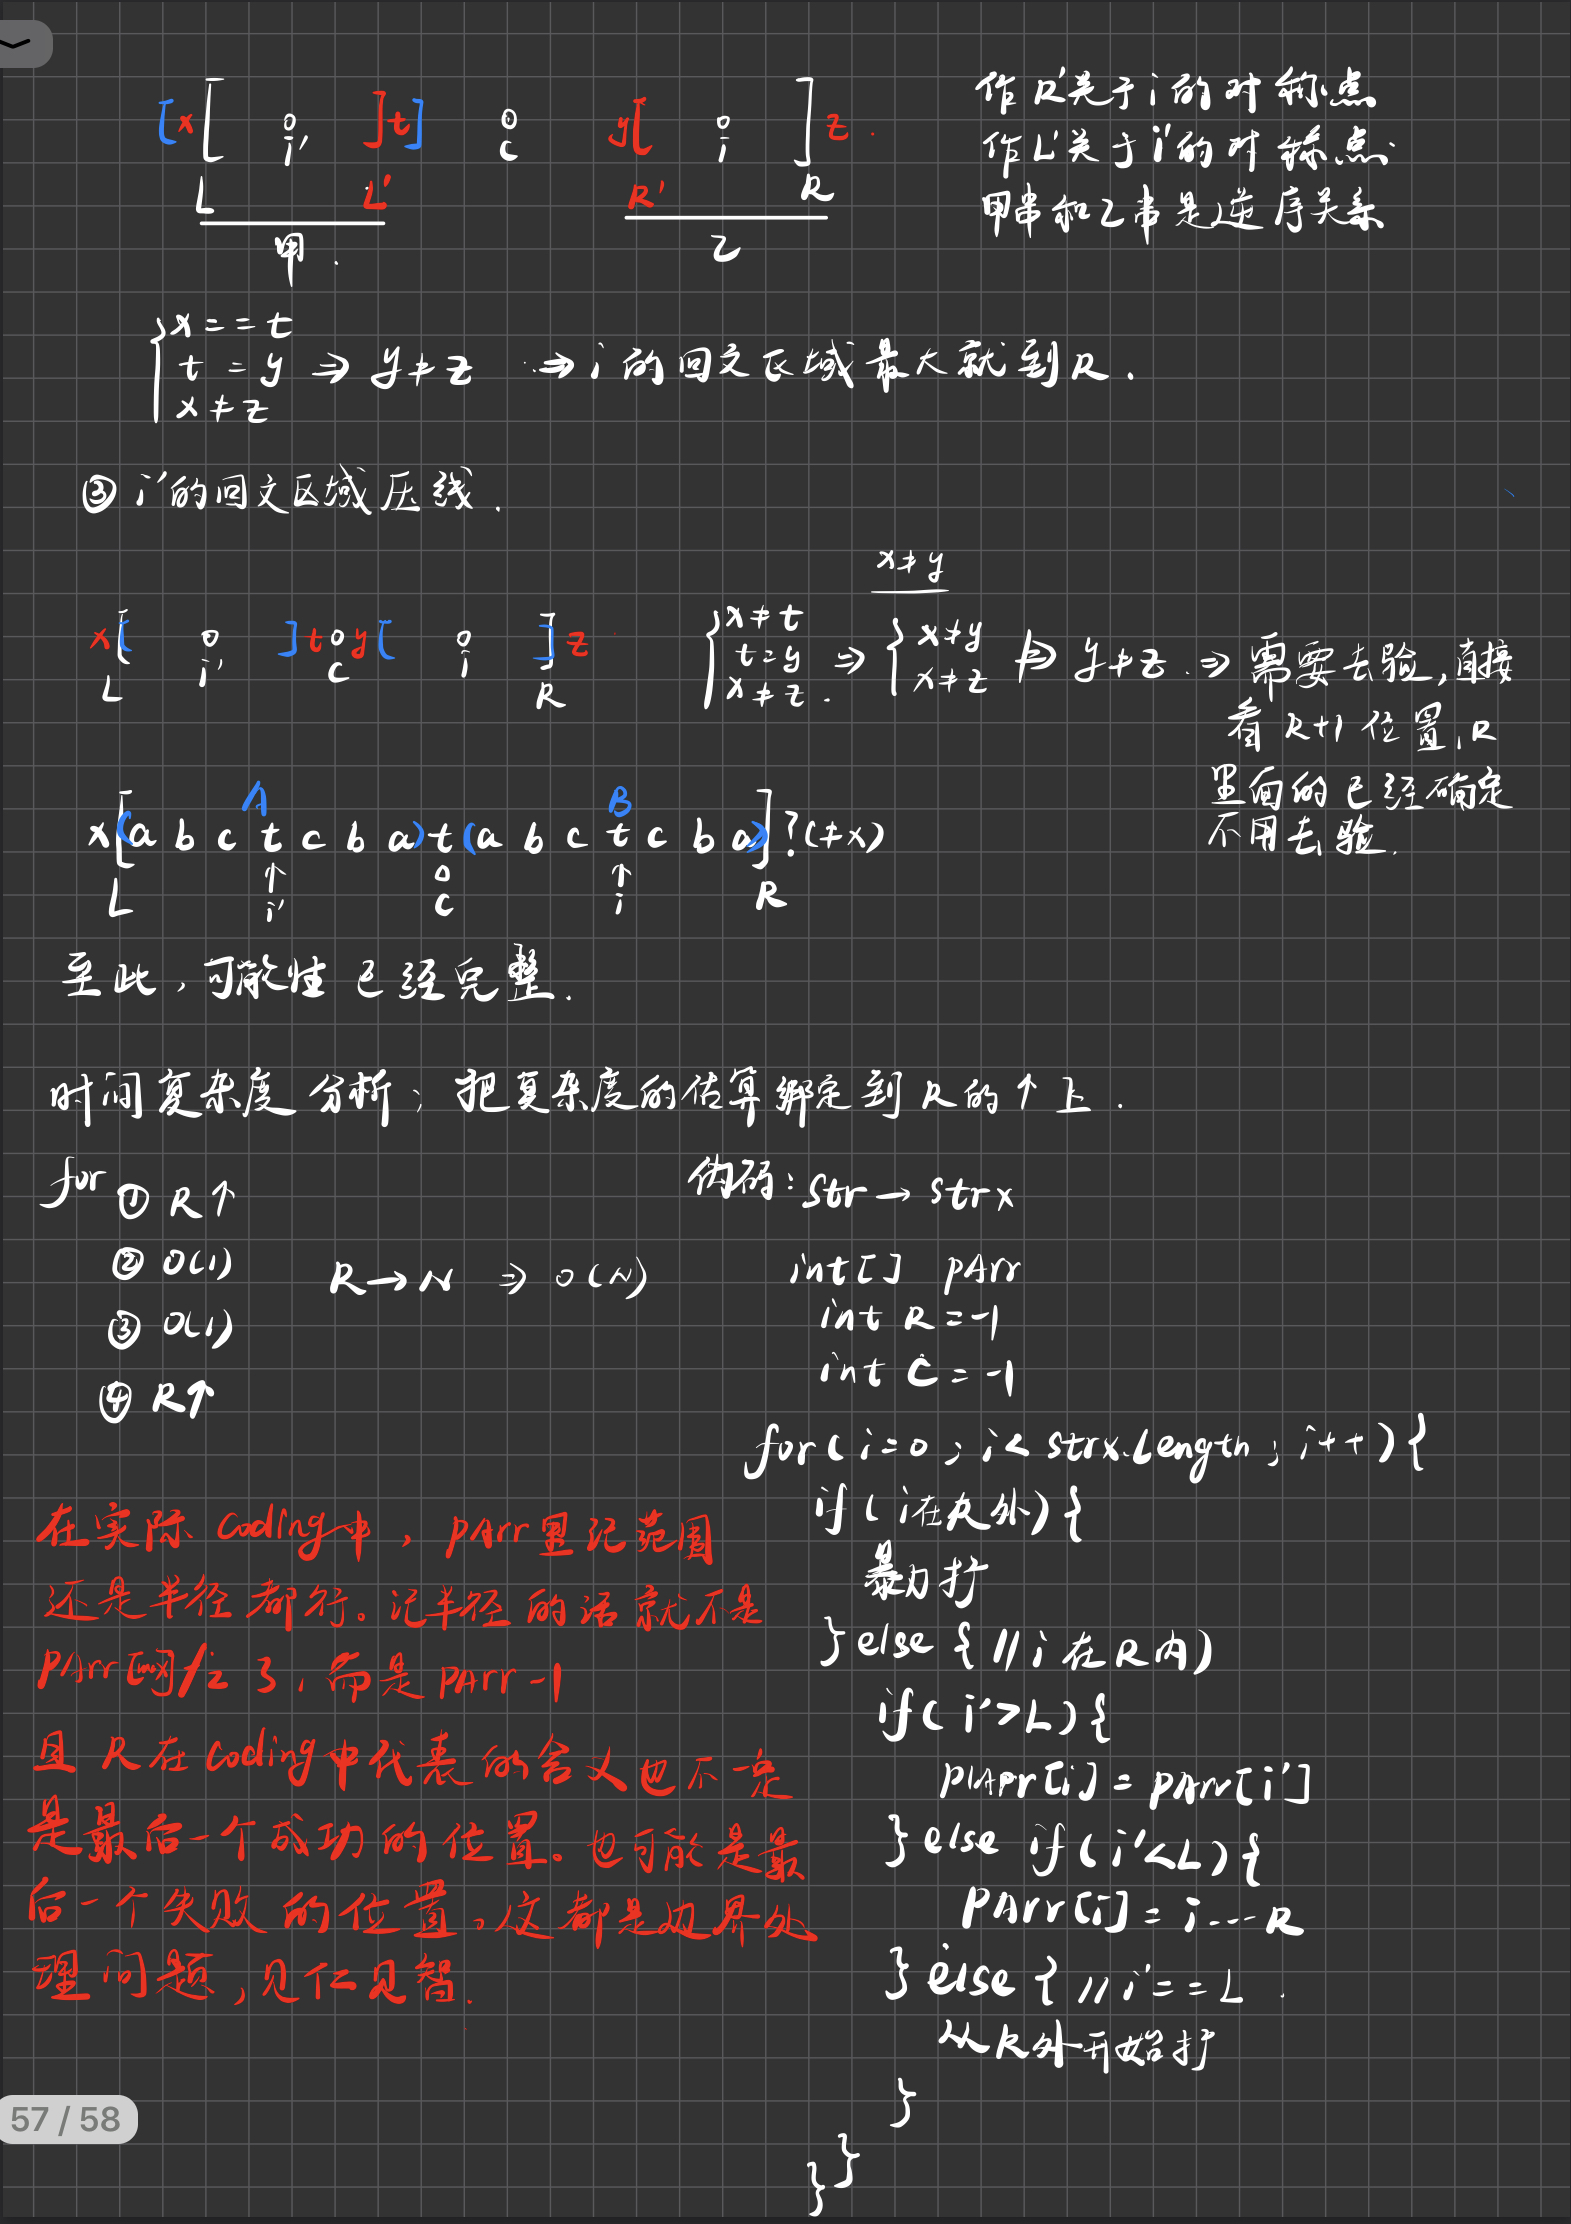 [x[ i' ]t] c y[ i ]z
L L' R' R
甲. 乙
作R'关于i的对称点
作L'关于i'的对称点.
甲串和乙串是逆序关系
x==t
t=y ⇒ y≠z ⇒ i的回文区域最大就到R.
x≠z
③ i'的回文区域压线.
x[ i' ]t c y[ i ]z
L R
x≠y
x≠t
t=y ⇒ x≠y ⇏ y≠z. ⇒ 需要去验,直接
x≠z. x≠z
看R+1位置,R
里面的已经确定
不用去验.
A B
x[(a b c t c b a)t(a b c t c b a)]?(≠x)
↑ ↑
L i' c i R
至此,可能性已经完整.
时间复杂度分析:把复杂度的估算绑定到R的↑上.
for ① R↑
② O(1)
③ O(1)
④ R↑
R→N ⇒ O(N)
伪码: Str→strx
int[] pArr
int R=-1
int C=-1
for(i=0; i<strx.Length; i++){
if(i在R外){
暴力扩
}else{ //i在R内)
if(i'>L){
pArr[i]=pArr[i']
}else if(i'<L){
PArr[i]=i---R
}else{ //i'==L.
从R外开始扩
}
}
}
在实际Coding中,pArr里记范围
还是半径都行。记半径的话就不是
PArr /2了,而是pArr-1
且R在Coding中代表的含义也不一定
是最后一个成功的位置。也可能是最
后一个失败的位置。这都是边界处
理问题,见仁见智.
57 / 58